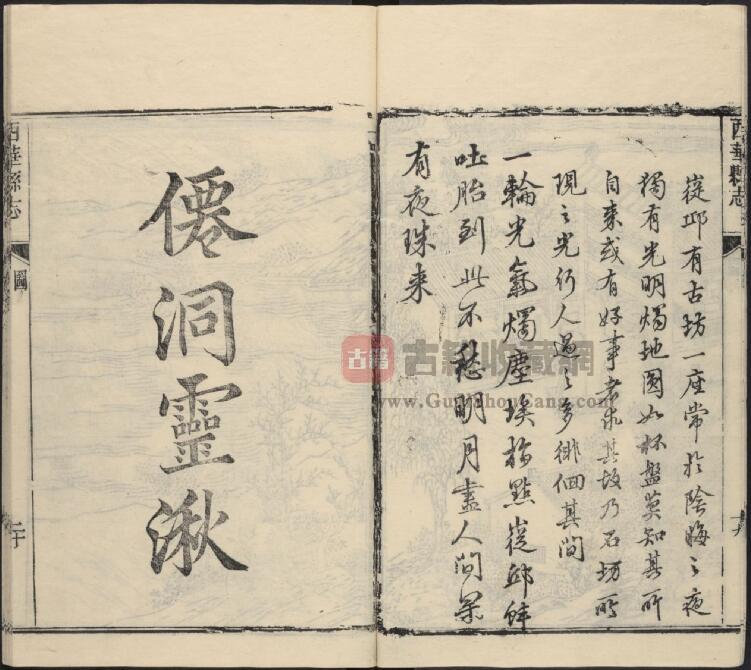 西華縣志
十九
嵸邱有古坊一座常於陰晦之夜
獨有光明燭地圓如杯盤莫知其所
自来或有好事者求其故乃石坊所
現之光行人過之多徘徊其間
一輪光氣燭塵埃指點嵸邱蚌
吐胎到此不愁明月盡人間果
有夜珠来
僊洞靈湫
西華縣志
圖
二十
古籍
古籍收藏網
www.GuJiShouCang.com